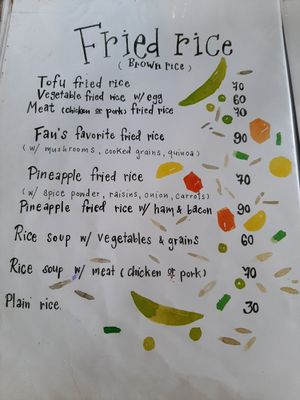 Fried rice
( Brown rice )
Tofu fried rice 70
Vegetable fried rice w/ egg 60
Meat (chicken or pork) fried rice 70
Fan's favorite fried rice 90
( w/ mushrooms, cooked grains, quinoa )
Pineapple fried rice 70
( w/ spice powder, raisins, onion, carrots )
Pineapple fried rice w/ ham & bacon 90
Rice soup w/ vegetables & grains 60
Rice soup w/ meat ( chicken or pork ) 70
Plain rice. 30